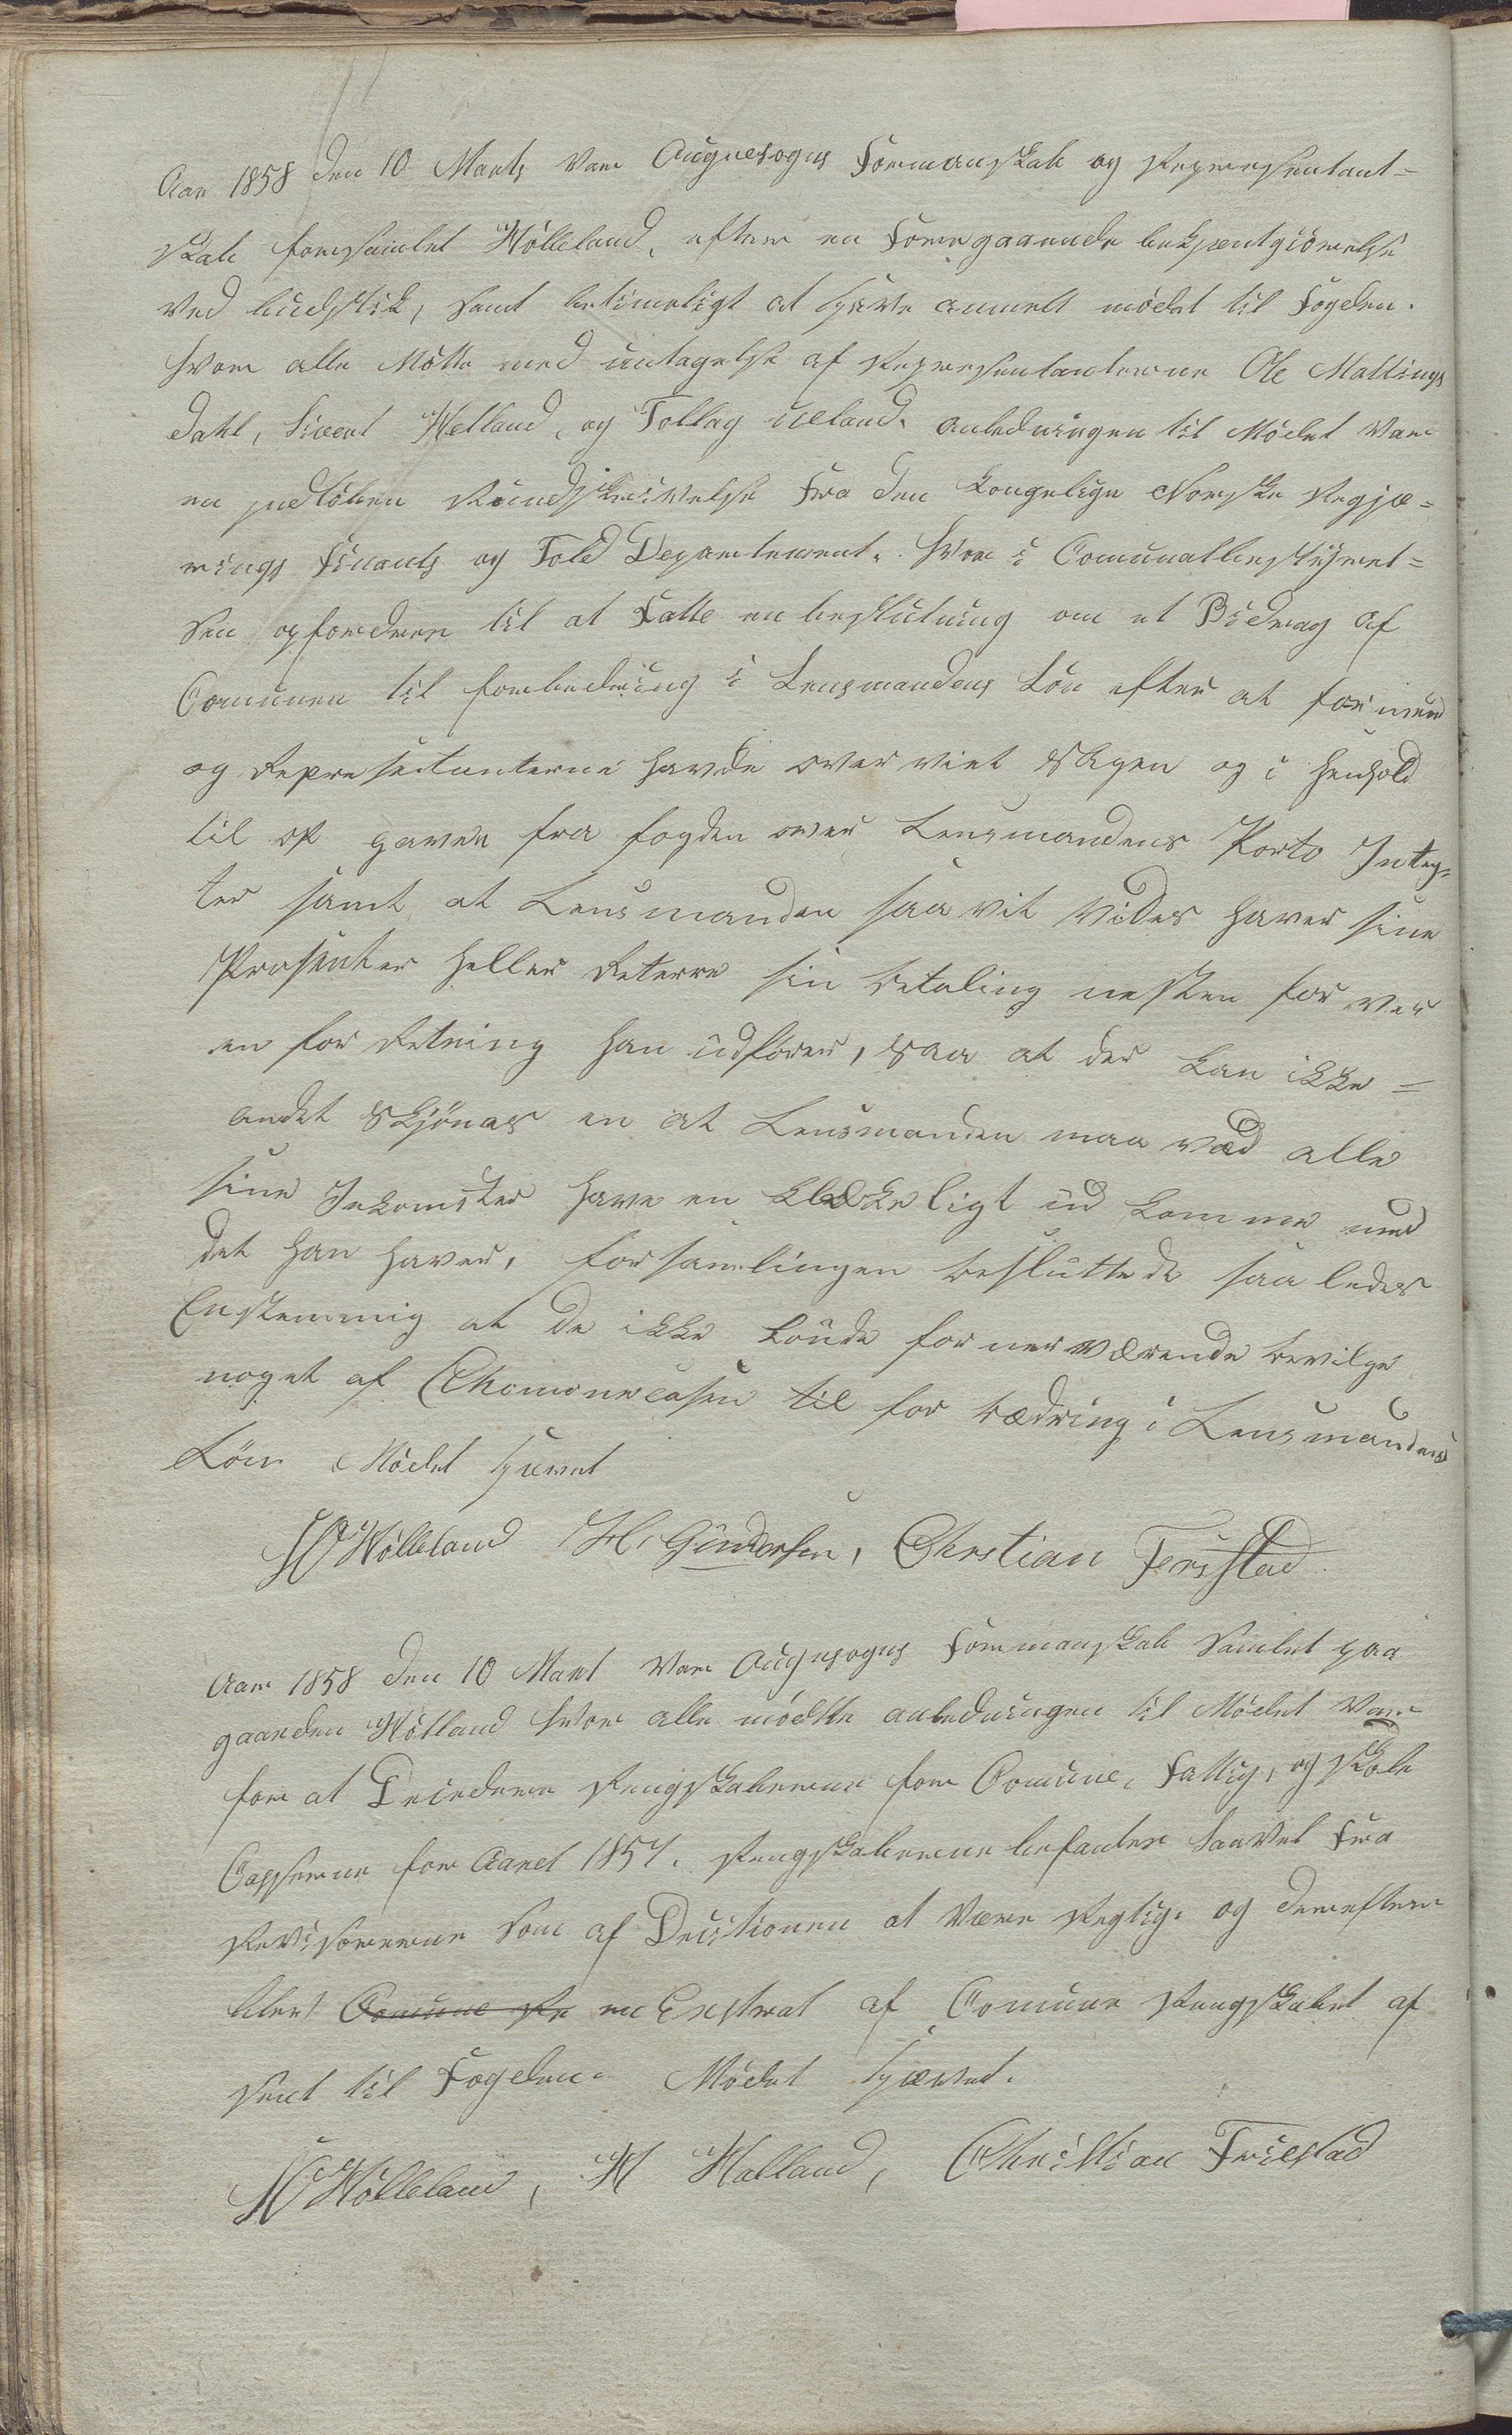 Aar 1858 den 10 Marts var Augnesogns Formanskab og Representant-
skab forsamlet Hölleland, efter en Foregaaende bekjentgiörelse
ved budstik, samt betimeligt at have anmelt mödet til Fogden.
hvor alle Mötte med untagelse af Representanterne Ole Mattings
dahl, Sivert Hetland, og Tollag Ueland. anledningen til Mödet var
en indlöben Rundskrivelse Fra den kongelige Norske Regjæ-
rings Finants og Told Departement. hvor i Comunalbestÿrel-
sen opfordrer til at Fatte en beslutning om et Bidrag af
Comunen til forbedring i Lensmandens Lön efter at formend
og Representanterne havde over viet Sagen og i henhold
til op gaver fra fogden over Lensmandens Porto Integ-
ter samt at Lensmanden saa vit vides haver sine
Prosenter heller deterre sin betaling nesten for ver
en for Retning han udförer, saa at der kan ikke =
andet skjönes en at Lensmanden maa ved alle
sine Inkomster have en klækkeligt ud komme med
det han haver, forsamlingen besluttede saa ledes
Enstemmig at de ikke kunde for nerværende bevilge
noget af Chomunecasen til for bædring i Lensmandens
Lön Mödet hævet
H Hölleland H. Gundersen, Chrstian Fristad
Aar 1858 den 10 Mart var Augnesogns Formanskab Samlet paa
gaarden Hölland hvor alle mödtte anledningen til Mödet var
for at Deciedere Rengskaberne for Comune, Fattig, og Skole
Casserne for Aaret 1857. Rengskaberne befantes saavel Fra
Revisorerne som af Decitionen at være Regtig. og derefter
blev Comune Re en Exstrat af Comune Rengskabet af
sent til Fogden. Mödet hævet.
H Hölleland, H Halland, Christian Friestad